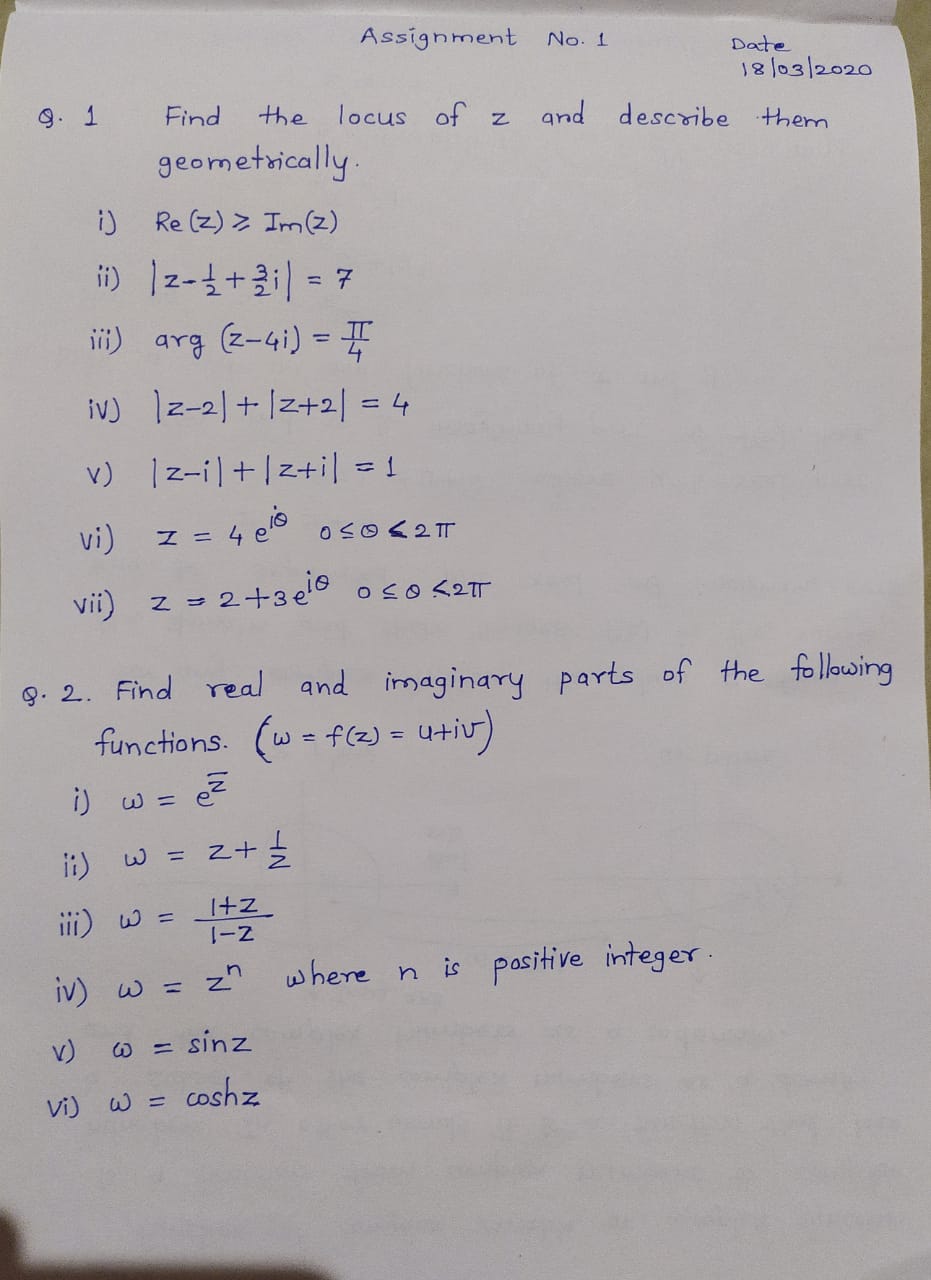 Assignment No. 1
Date
18/03/2020
Q. 1 Find the locus of z and describe them
geometrically.
i) Re (z) ⩾ Im(z)
ii) |z-1/2+3/2i| = 7
iii) arg (z-4i) = π/4
iv) |z-2|+|z+2| = 4
v) |z-i|+|z+i| = 1
vi) z = 4e^iθ 0≤θ<2π
vii) z = 2+3e^iθ 0≤θ<2π
Q. 2. Find real and imaginary parts of the following
functions. (w = f(z) = u+iv)
i) w = e^z̅
ii) w = z+1/z
iii) w = 1+z/1-z
iv) w = z^n where n is positive integer.
v) w = sinz
vi) w = coshz